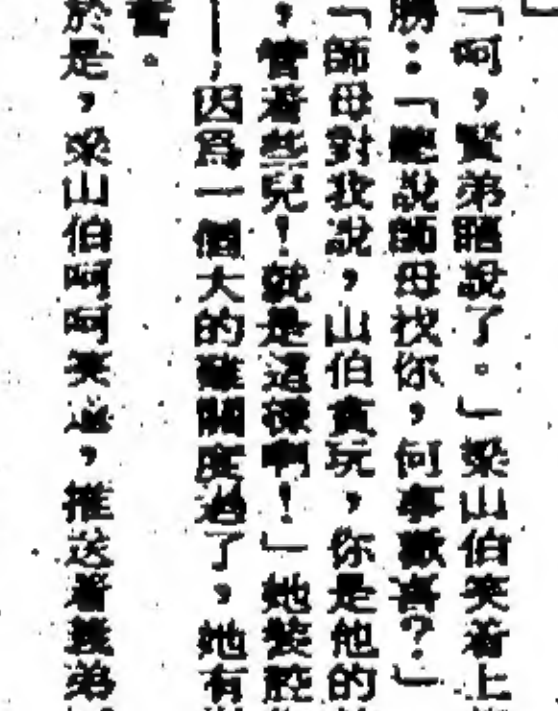 」
「呵,賢弟瞎說了。」梁山伯笑着上
勝:「聽說師母找你,何事歡喜?」
「師母對我說,山伯貪玩,你是他的
,管着些兒!就是這樣啊!」她裝腔
—,因爲一個大的難關度過了,她有
書。
於是,梁山伯呵呵笑道,推送着義弟